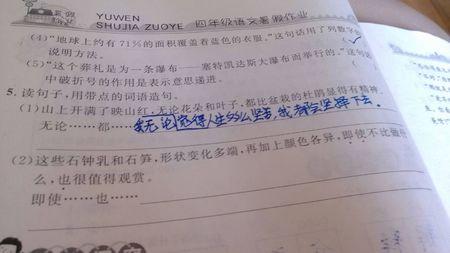 暑假
作业
YUWEN
SHUJIA ZUOYE 四年级语文暑假作业
(4)“地球上约有71%的面积覆盖着蓝色的衣服。”这句话用了列数字
说明方法。
(5)“这个葬礼是为一条瀑布——塞特凯达斯大瀑布而举行的。”这句话
中破折号的作用是表示意思递进。
5. 读句子，用带点的词语造句。
(1)山上开满了映山红，无论花朵和叶子，都比盆栽的杜鹃显得有精神。
无论……都…… 我无论觉得人生多么坚苦，我都会坚持下去。
(2)这些石钟乳和石笋，形状变化多端，再加上颜色各异，即使不比
么，也很值得观赏。
即使……也……